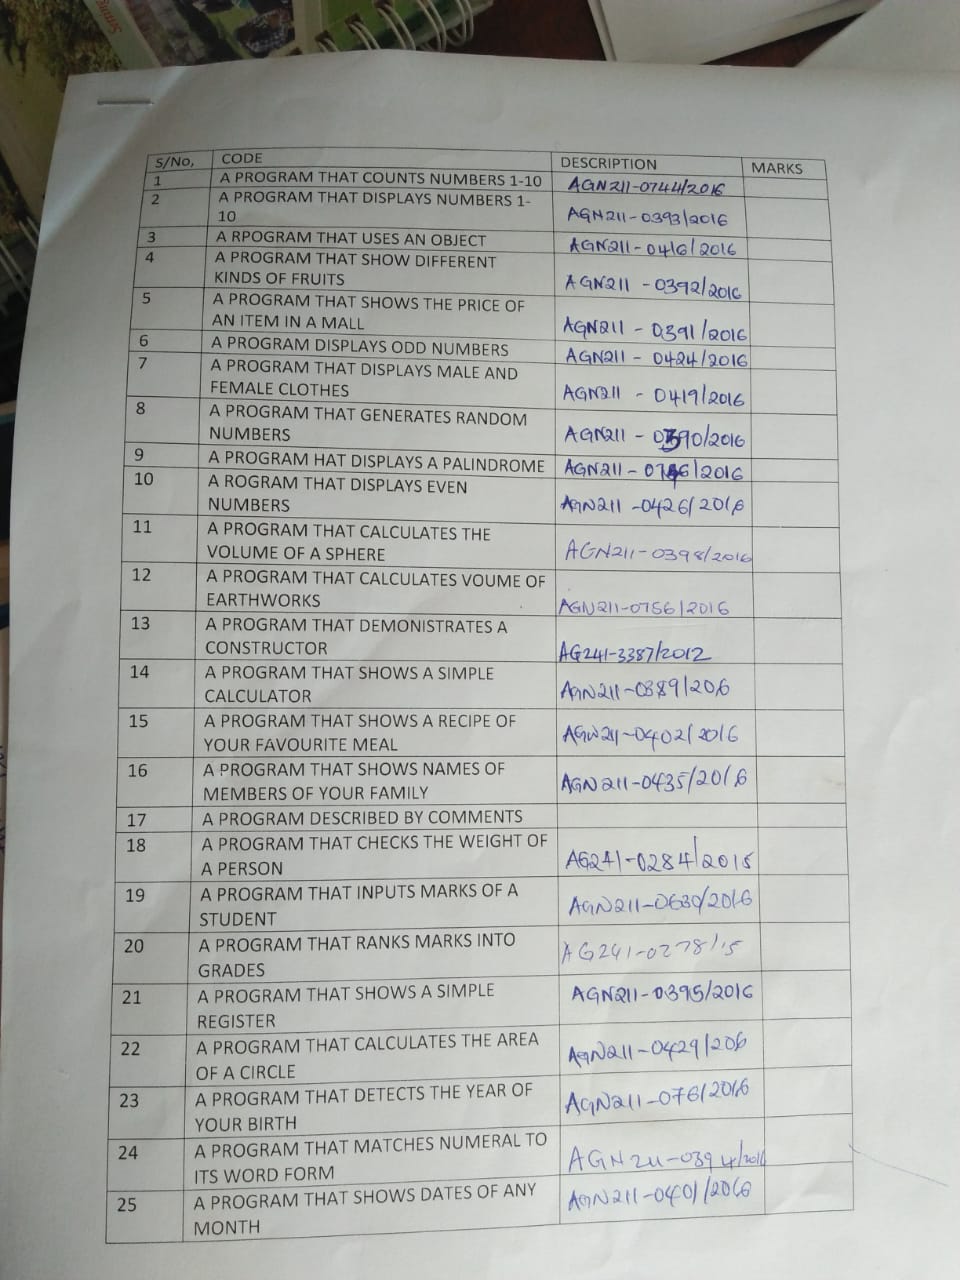 S/No, CODE DESCRIPTION MARKS
1 A PROGRAM THAT COUNTS NUMBERS 1-10 AGN211-0744/2016
2 A PROGRAM THAT DISPLAYS NUMBERS 1-
10 AGN211-0393/2016
3 A RPOGRAM THAT USES AN OBJECT AGN211-0416/2016
4 A PROGRAM THAT SHOW DIFFERENT
KINDS OF FRUITS AGN211-0392/2016
5 A PROGRAM THAT SHOWS THE PRICE OF
AN ITEM IN A MALL AGN211-0391/2016
6 A PROGRAM DISPLAYS ODD NUMBERS AGN211-0424/2016
7 A PROGRAM THAT DISPLAYS MALE AND
FEMALE CLOTHES AGN211-0419/2016
8 A PROGRAM THAT GENERATES RANDOM
NUMBERS AGN211-0390/2016
9 A PROGRAM HAT DISPLAYS A PALINDROME
10 A ROGRAM THAT DISPLAYS EVEN
NUMBERS AGN211-0426/2016
11 A PROGRAM THAT CALCULATES THE
VOLUME OF A SPHERE AGN211-0398/2016
12 A PROGRAM THAT CALCULATES VOUME OF
EARTHWORKS AGN211-0756/2016
13 A PROGRAM THAT DEMONISTRATES A
CONSTRUCTOR AG241-3387/2012
14 A PROGRAM THAT SHOWS A SIMPLE
CALCULATOR AGN211-0389/206
15 A PROGRAM THAT SHOWS A RECIPE OF
YOUR FAVOURITE MEAL AGN211-0402/2016
16 A PROGRAM THAT SHOWS NAMES OF
MEMBERS OF YOUR FAMILY AGN211-0435/2016
17 A PROGRAM DESCRIBED BY COMMENTS
18 A PROGRAM THAT CHECKS THE WEIGHT OF
A PERSON AG241-0284/2015
19 A PROGRAM THAT INPUTS MARKS OF A
STUDENT AGN211-0630/2016
20 A PROGRAM THAT RANKS MARKS INTO
GRADES AG241-0278/15
21 A PROGRAM THAT SHOWS A SIMPLE
REGISTER AGN211-0395/2016
22 A PROGRAM THAT CALCULATES THE AREA
OF A CIRCLE AGN211-0429/206
23 A PROGRAM THAT DETECTS THE YEAR OF
YOUR BIRTH AGN211-076/2016
24 A PROGRAM THAT MATCHES NUMERAL TO
ITS WORD FORM AGN211-0394/2016
25 A PROGRAM THAT SHOWS DATES OF ANY
MONTH AGN211-0401/2016